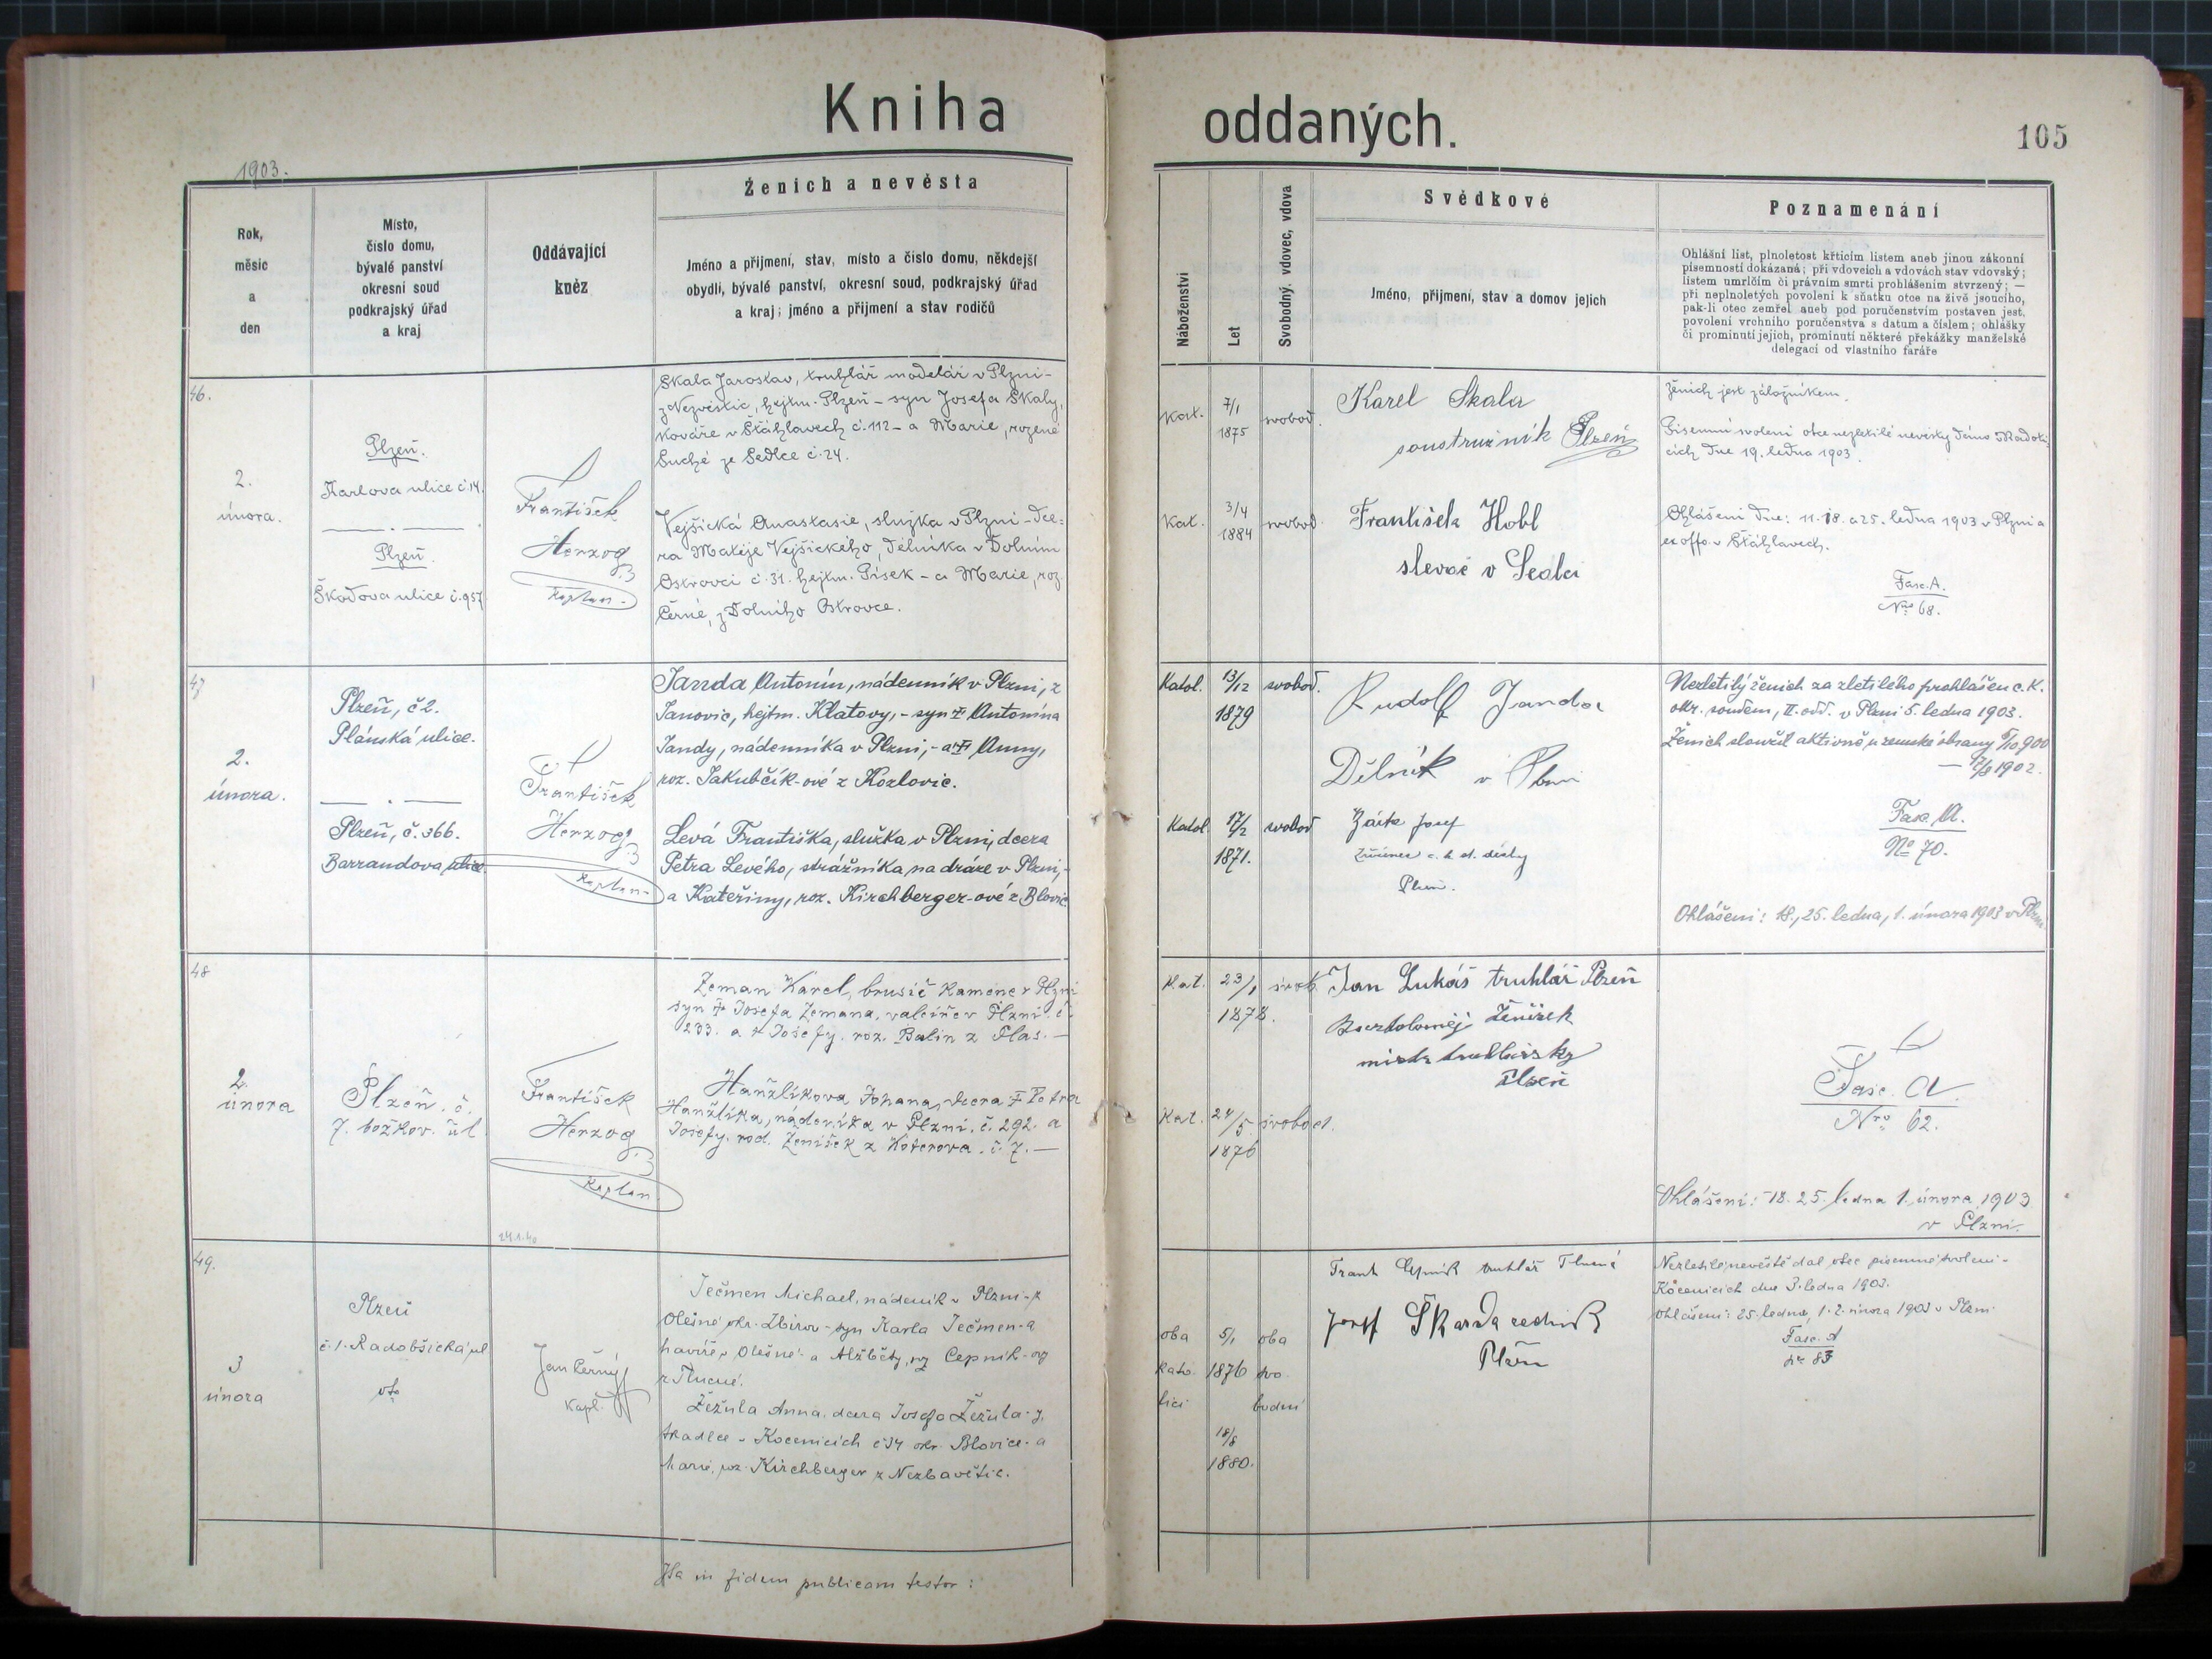 Kniha
oddaných.
105
1903.
Rok,
měsíc
a
den
Místo,
číslo domu,
bývalé panství
okresní soud
podkrajský úřad
a kraj
Oddávající
kněz
Ženich a nevěsta
Jméno a přijmení, stav, místo a číslo domu, někdejší
obydlí, bývalé panství, okresní soud, podkrajský úřad
a kraj; jméno a přijmení a stav rodičů
Náboženství
Let
Svobodný, vdovec, vdova
Svědkové
Jméno, přijmení, stav a domov jejich
Poznamenání
Ohlášní list, plnoletost křticím listem aneb jinou zákonní
písemností dokázaná; při vdovcích a vdovách stav vdovský;
listem umrlčím či právním smrti prohlášením stvrzený; —
při neplnoletých povolení k sňatku otce na živě jsoucího,
pak-li otec zemřel aneb pod poručenstvím postaven jest,
povolení vrchního poručenstva s datum a číslem; ohlášky
či prominutí jejich, prominutí některé překážky manželské
delegací od vlastního faráře
46.
2.
února.
Plzeň.
Karlova ulice č. 14.
Plzeň.
Škodova ulice č. 957
František
Herzog
kaplan
Skala Jaroslav, truhlář modelář v Plzni -
z Nezvěstic, hejtm. Plzeň - syn Josefa Skaly,
kováře v Šťáhlavech č. 112 - a Marie, rozené
Suché ze Sedlce č. 24.
Vejšická Anastasie, služka v Plzni - dce-
ra Matěje Vejšického, dělníka v Dolním
Ostrovci č. 31. hejtm. Písek - a Marie, roz.
Černé, z Dolního Ostrovce.
Kat.
7/1
1875
svobod.
Kat.
3/4
1884
svobod.
Karel Skala
soustružník Plzeň
František Hobl
slevač v Sedlci
Ženich jest záložníkem.
Písemní svolení otce nezletilé nevěsty dáno
cích dne 19. ledna 1903.
Ohlášeni dne: 11. 18. a 25. ledna 1903 v Plzni a
ex offo v Šťáhlavech.
Fasc. A.
Nro 68.
47
2.
února.
Plzeň, č 2.
Plánská ulice.
Plzeň, č. 366.
Barrandova ulice
František
Herzog
kaplan
Janda Antonín, nádenník v Plzni, z
Janovic, hejtm. Klatovy, - syn † Antonína
Jandy, nádenníka v Plzni, - a † Anny,
roz. Jakubčík-ové z Kozlovic.
Levá Františka, služka v Plzni, dcera
Petra Levého, strážníka na dráze v Plzni, -
a Kateřiny, roz. Kirchberger-ové z Blovic
Katol.
13/12
1879
svobod.
Katol.
17/2
1871.
svobod
Rudolf Janda
Dělník v Plzni
Josef
c. k. st. dráhy
Plzeň.
Nezletilý ženich za zletilého prohlášen c. k.
okr. soudem, II. odd. v Plzni 5. ledna 1903.
Ženich sloužil aktivně u zemské obrany
1902.
Fasc. A.
No 70.
Ohlášeni: 18., 25. ledna, 1. února 1903 v Plzni
48
2
února
Plzeň. č.
7. božkov. ul
František
Herzog
kaplan
24.1.40
Zeman Karel, brusič kamene v Plzni
syn † Josefa Zemana, valcíře v Plzni č.
233. a † Josefy. roz. Balin z Plas. —
Hanžlíkova Johana, dcera † Petra
Hanžlíka, náden íka v Plzni. č. 292. a
Josefy. rod. Ženíšek z Koterova. č. 7. —
Kat.
23/1
1878.
svob.
Kat.
24/5
1876
svobod.
Jan Lukáš truhlář Plzeň
Bartoloměj Ženíšek
mistr truhlářský
Plzeň
Fasc. A.
Nro 62.
Ohlášeni: 18. 25. ledna 1. února 1903
v Plzni.
49.
3
února
Plzeň
č. 1. Radobšická ul
Jan Černý
kapl.
Ječmen Michael, nádeník v Plzni - z
Olešné okr. Zbirov - syn Karla Ječmen-a
havíře v Olešné - a Alžběty, roz Cepník-ovy
z Tlucné.
Žežula Anna, dcera Josefa Žežula-y,
tkadlce v Kocenicích č 34 okr. Blovice - a
Marie, roz. Kirchberger z Nezbavětic.
oba
kato-
líci
5/1
1876
18/8
1880.
oba
svo-
bodni
Frant Cepník truhlář Tlucná
Josef Škarda
Plzeň
Nezletilé nevěstě dal otec písemné svolení -
Kocenicích dne 3. ledna 1903.
Ohlášeni: 25. ledna, 1. 2. února 1903 v Plzni.
Fasc. A
Nr 83
Ita in fidem publicam testor: